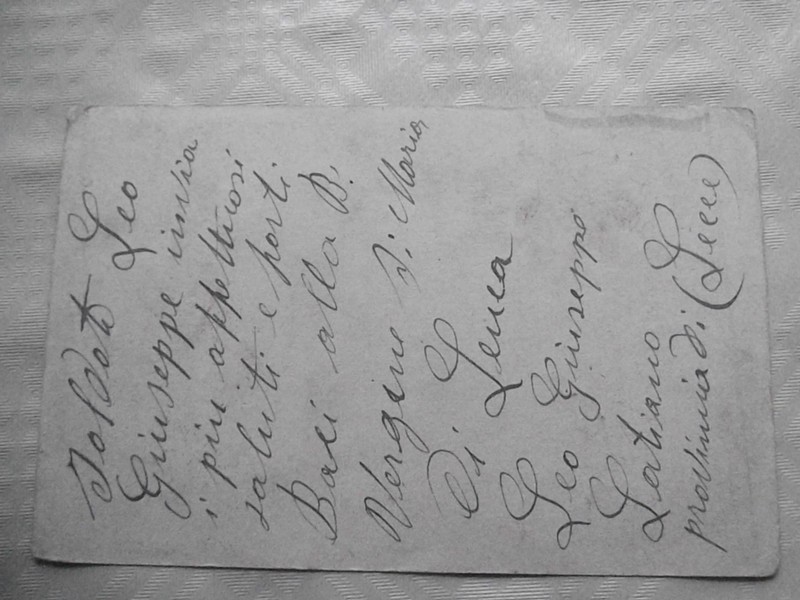 Soldato Leo
Giuseppe invia
i più appettitosi
saluti e forti
Baci alla B.
Vergine di Maria
Di Leuca
Leo Giuseppe
Latiano
provincia di (Lecce)